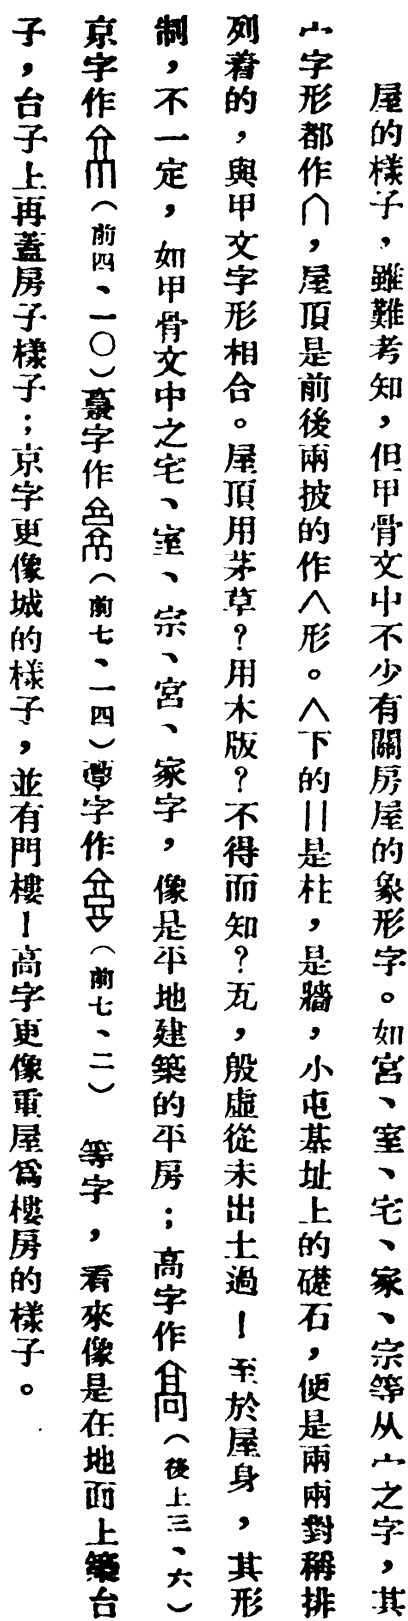 屋的樣子，雖難考知，但甲骨文中不少有關房屋的象形字。如宮、室、宅、家、宗等从宀之字，其
宀字形都作∩，屋頂是前後兩披的作∧形。∧下的||是柱，是牆，小屯基址上的礎石，便是兩兩對稱排
列着的，與甲文字形相合。屋頂用茅草？用木版？不得而知？瓦，殷虛從未出土過！至於屋身，其形
制，不一定，如甲骨文中之宅、室、宗、宮、家字，像是平地建築的平房；高字作（後上三、六）
京字作（前四、一〇）字作（前七、一四）字作（前七、二）等字，看來像是在地面上築台
子，台子上再蓋房子樣子；京字更像城的樣子，並有門樓！高字更像重屋爲樓房的樣子。